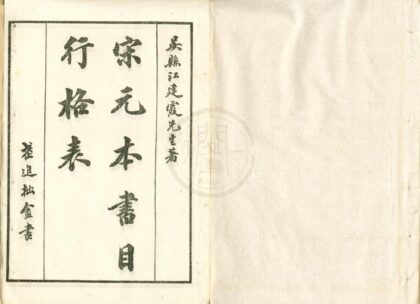 吳縣江建霞先生著
宋元本書目
行格表